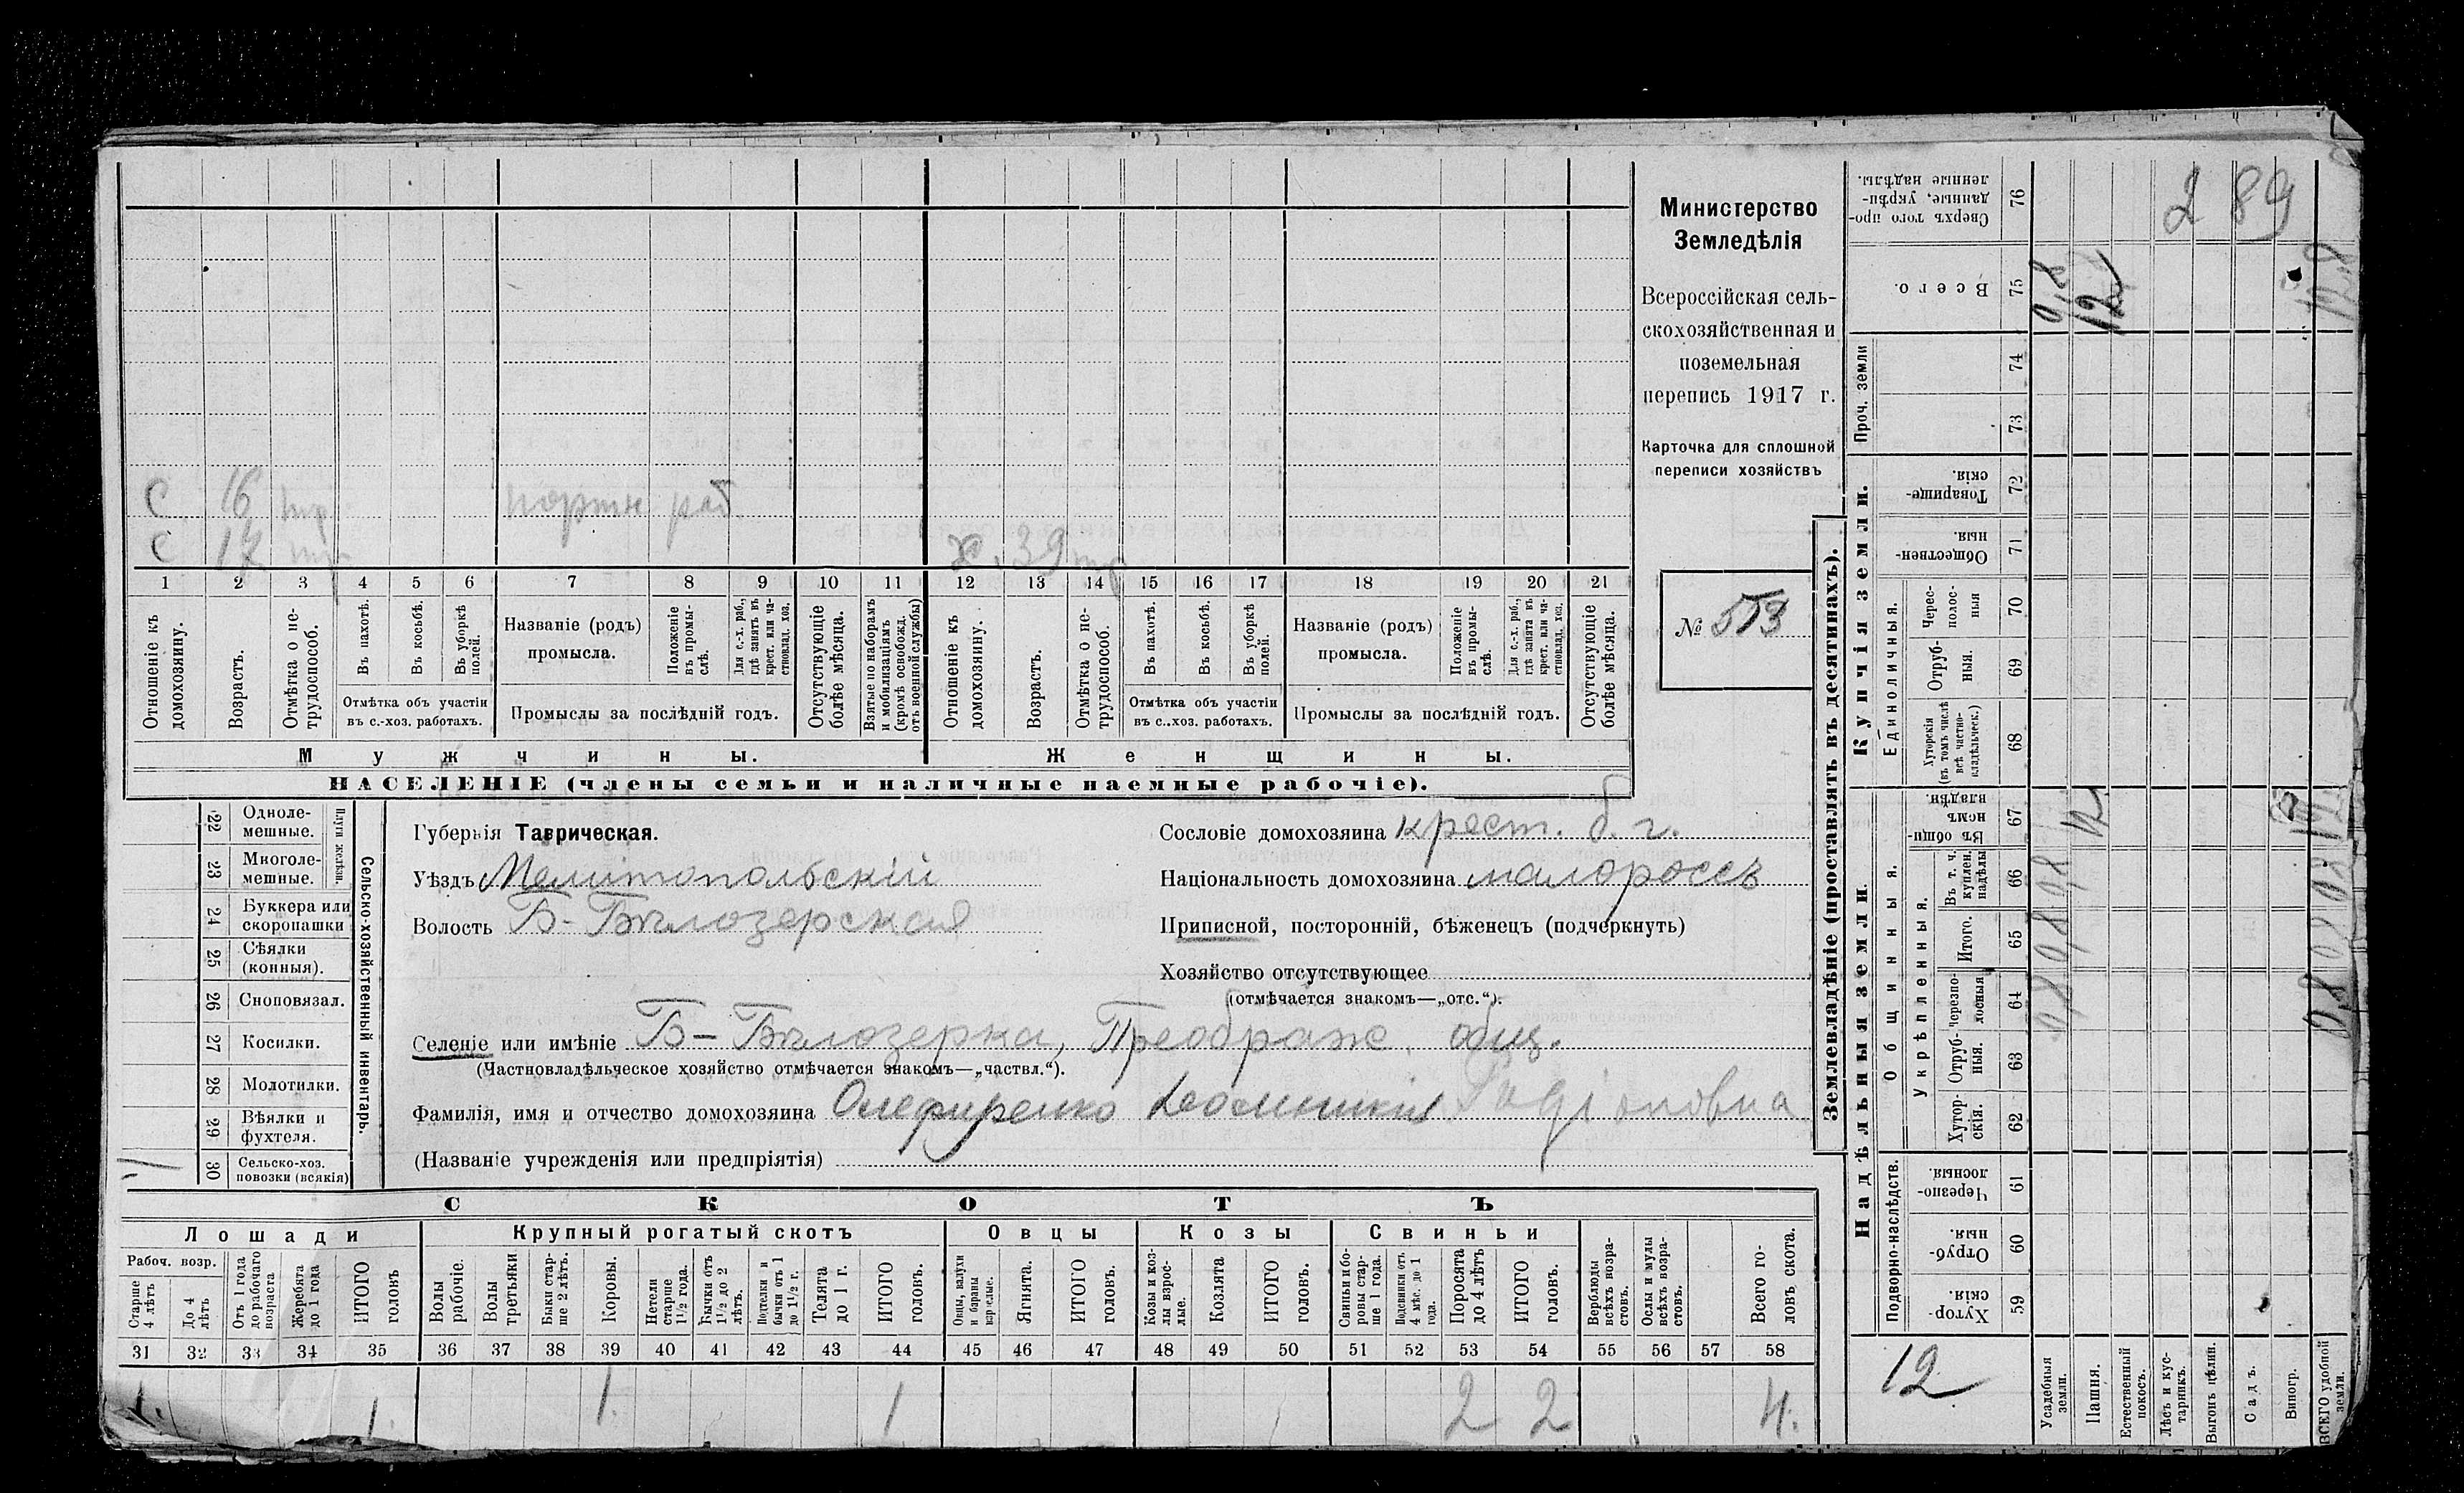 Министерство
Земледѣлія
Всероссійская сель-
скохозяйственная и
поземельная
перепись 1917 г.
Карточка для сплошной
переписи хозяйствъ
№ 553
С 16 портн раб.
С 17 39
1 2 3 4 5 6 7 8 9 10 11 12 13 14 15 16 17 18 19 20 21
Отношеніе къ домохозяину.
Возрастъ.
Отмѣтка о не-трудоспособ.
Въ пахотѣ.
Въ косьбѣ.
Въ уборкѣ полей.
Отмѣтка объ участіи
въ с.-хоз. работахъ.
Названіе (родъ)
промысла.
Положеніе въ промы-слѣ.
Для с.-х. раб., гдѣ занятъ въ крест. или ча-стновлад. хоз.
Промыслы за послѣдній годъ.
Отсутствующіе болѣе мѣсяца.
Взятые по наборамъ и мобилизаціямъ (кромѣ освобожд. отъ военной службы)
Отношеніе къ домохозяину.
Возрастъ.
Отмѣтка о не-трудоспособ.
Въ пахотѣ.
Въ косьбѣ.
Въ уборкѣ полей.
Отмѣтка объ участіи
въ с.-хоз. работахъ.
Названіе (родъ)
промысла.
Положеніе въ промы-слѣ.
Для с.-х. раб., гдѣ занята въ крест. или ча-стновлад. хоз.
Промыслы за послѣдній годъ.
Отсутствующіе болѣе мѣсяца.
Мужчины. Женщины.
НАСЕЛЕНІЕ (члены семьи и наличные наемные рабочіе).
Сельско-хозяйственный инвентарь.
Плуги желѣзн.
22 Одноле-мешные.
23 Многоле-мешные.
24 Буккера или скоропашки
25 Сѣялки (конныя).
26 Сноповязал.
27 Косилки.
28 Молотилки.
29 Вѣялки и фухтеля.
30 Сельско-хоз. повозки (всякія)
Губернія Таврическая.
Уѣздъ Мелитопольскій
Волость Б-Бѣлозерская
Сословіе домохозяина крест. б. г.
Національность домохозяина малороссъ
Приписной, посторонній, бѣженецъ (подчеркнуть)
Хозяйство отсутствующее
(отмѣчается знакомъ—„отс.“).
Селеніе или имѣніе Б-Бѣлозерка, Преображ. общ.
(Частновладѣльческое хозяйство отмѣчается знакомъ—„частвл.“).
Фамилія, имя и отчество домохозяина Олефиренко
(Названіе учрежденія или предпріятія)
СКОТЪ
Лошади Крупный рогатый скотъ Овцы Козы Свиньи
Рабоч. возр.
Старше 4 лѣтъ
До 4 лѣтъ
Отъ 1 года до рабочаго возраста
Жеребята до 1 года
ИТОГО головъ
Волы рабочіе.
Волы третьяки
Быки стар-ше 2 лѣтъ.
Коровы.
Нетели старше 1½ года.
Бычки отъ 1½ до 2 лѣтъ.
Подтелки и бычки отъ 1 до 1½ г.
Телята до 1 г.
ИТОГО головъ.
Овцы, валухи и бараны взрослые.
Ягнята.
ИТОГО головъ.
Козы и коз-лы взрос-лые.
Козлята
ИТОГО головъ.
Свиньи и бо-ровы стар-ше 1 года.
Подсвинки отъ 4 мѣс. до 1 года.
Поросята до 4 лѣтъ
ИТОГО головъ.
Верблюды всѣхъ возра-стовъ.
Ослы и мулы всѣхъ возра-стовъ.
Всего го-ловъ скота.
31 32 33 34 35 36 37 38 39 40 41 42 43 44 45 46 47 48 49 50 51 52 53 54 55 56 57 58
1. 1. 1. 1 2 2 4.
Землевладѣніе (проставлять въ десятинахъ).
Сверхъ того про-данные, укрѣп-ленные надѣлы. 76
2 89
Всего. 75 0,8 12 12,8
Проч. земли 74 73
Купчія земли.
Товарище-скія. 72
Обществен-ныя. 71
Единоличныя.
Черес-полос-ныя 70
Отруб-ныя. 69
Хуторскія (въ томъ числѣ всѣ частно-владѣльческ.) 68
Надѣльныя земли.
Общинныя.
Въ общин-номъ владѣн. 67 12 12
Укрѣпленныя.
Въ т. ч. куплен. надѣлы 66 0,8
Итого. 65 0,8
Черезпо-лосныя 64 0,8
Отруб-ныя. 63
Хутор-скія. 62
Подворно-наслѣдств.
Черезпо-лосныя. 61
Отруб-ныя. 60
Хутор-скія. 59
12
Усадебныя земли.
Пашня.
Естественный покосъ.
Лѣсъ и кус-тарникъ.
Выгонъ цѣлин.
Садъ.
Виногр.
ВСЕГО удобной земли.